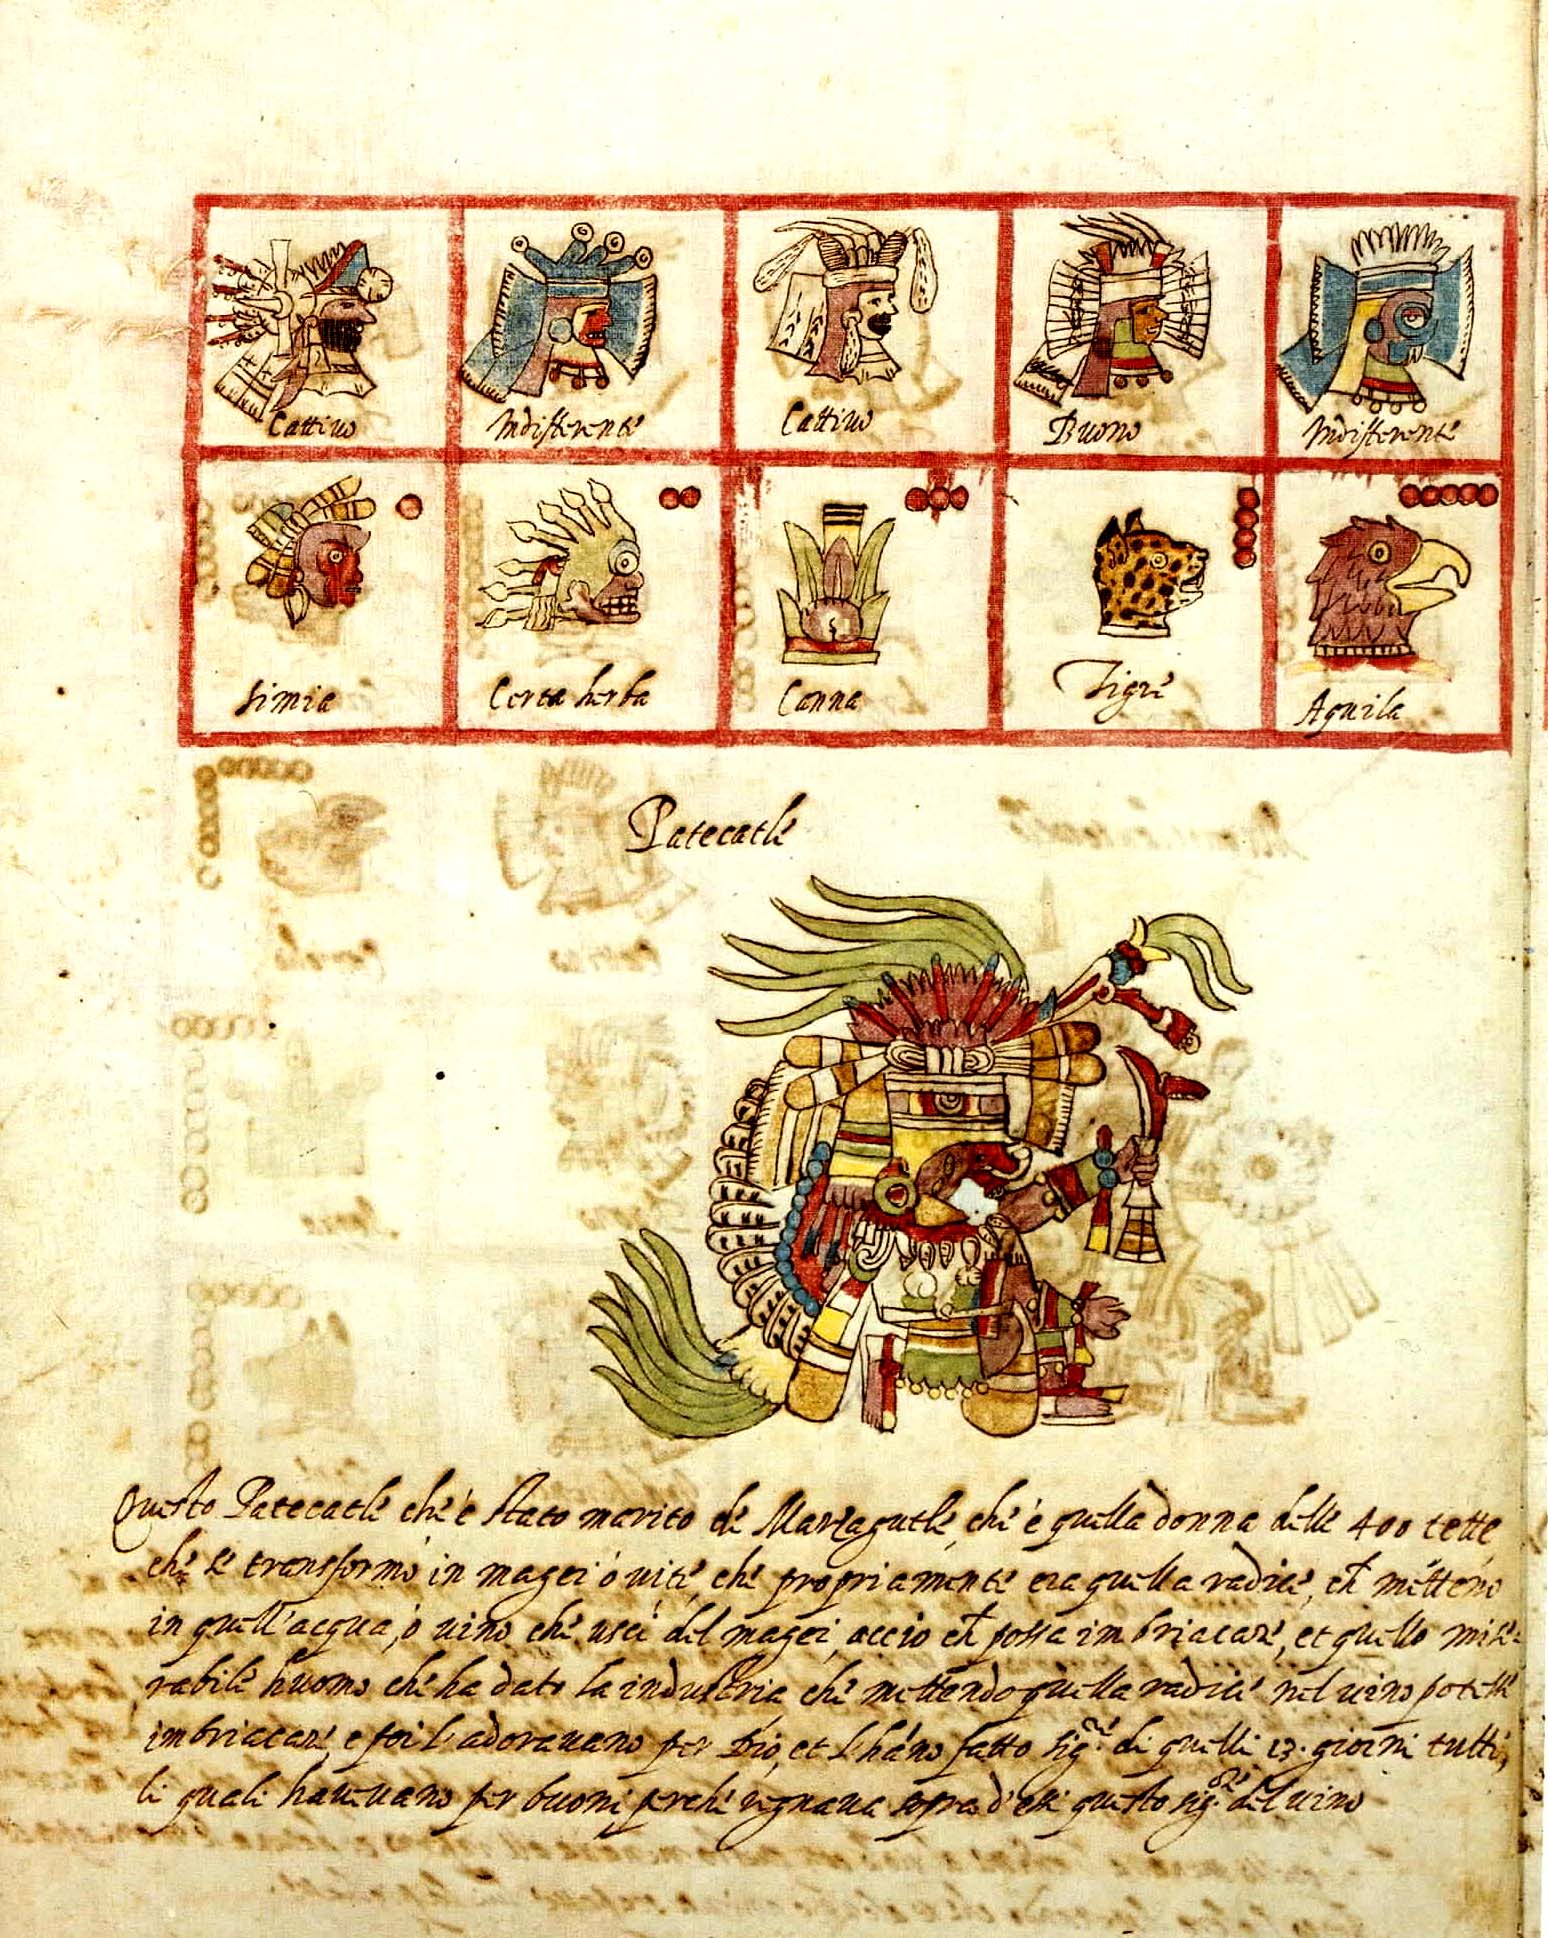 Cattiuo Indifferente Cattiuo Buono Indifferente
Simia Certa herba Canna Tigre Aguila
Patecatle
Questo Patecatle che è stato marito de Maszagutle, che è quella donna delle 400 tette
che se transformò in magei ò uite, che propriamente era quella radice, ch̃ metteno
in quell'acqua, ò uino che uscì del magei, acciò ch̃ possa imbriacare, et quello mise-
rabile huomo che ha dato la industria che mettendo quella radice nel uino potesse
imbriacare, e poi l'adorauano per Dio, et l'hãno fatto sig.re di quelli 13. giorni tutti,
li quali haueuano per buoni, perche regnaua sopra d'essi questo sig.ore del uino